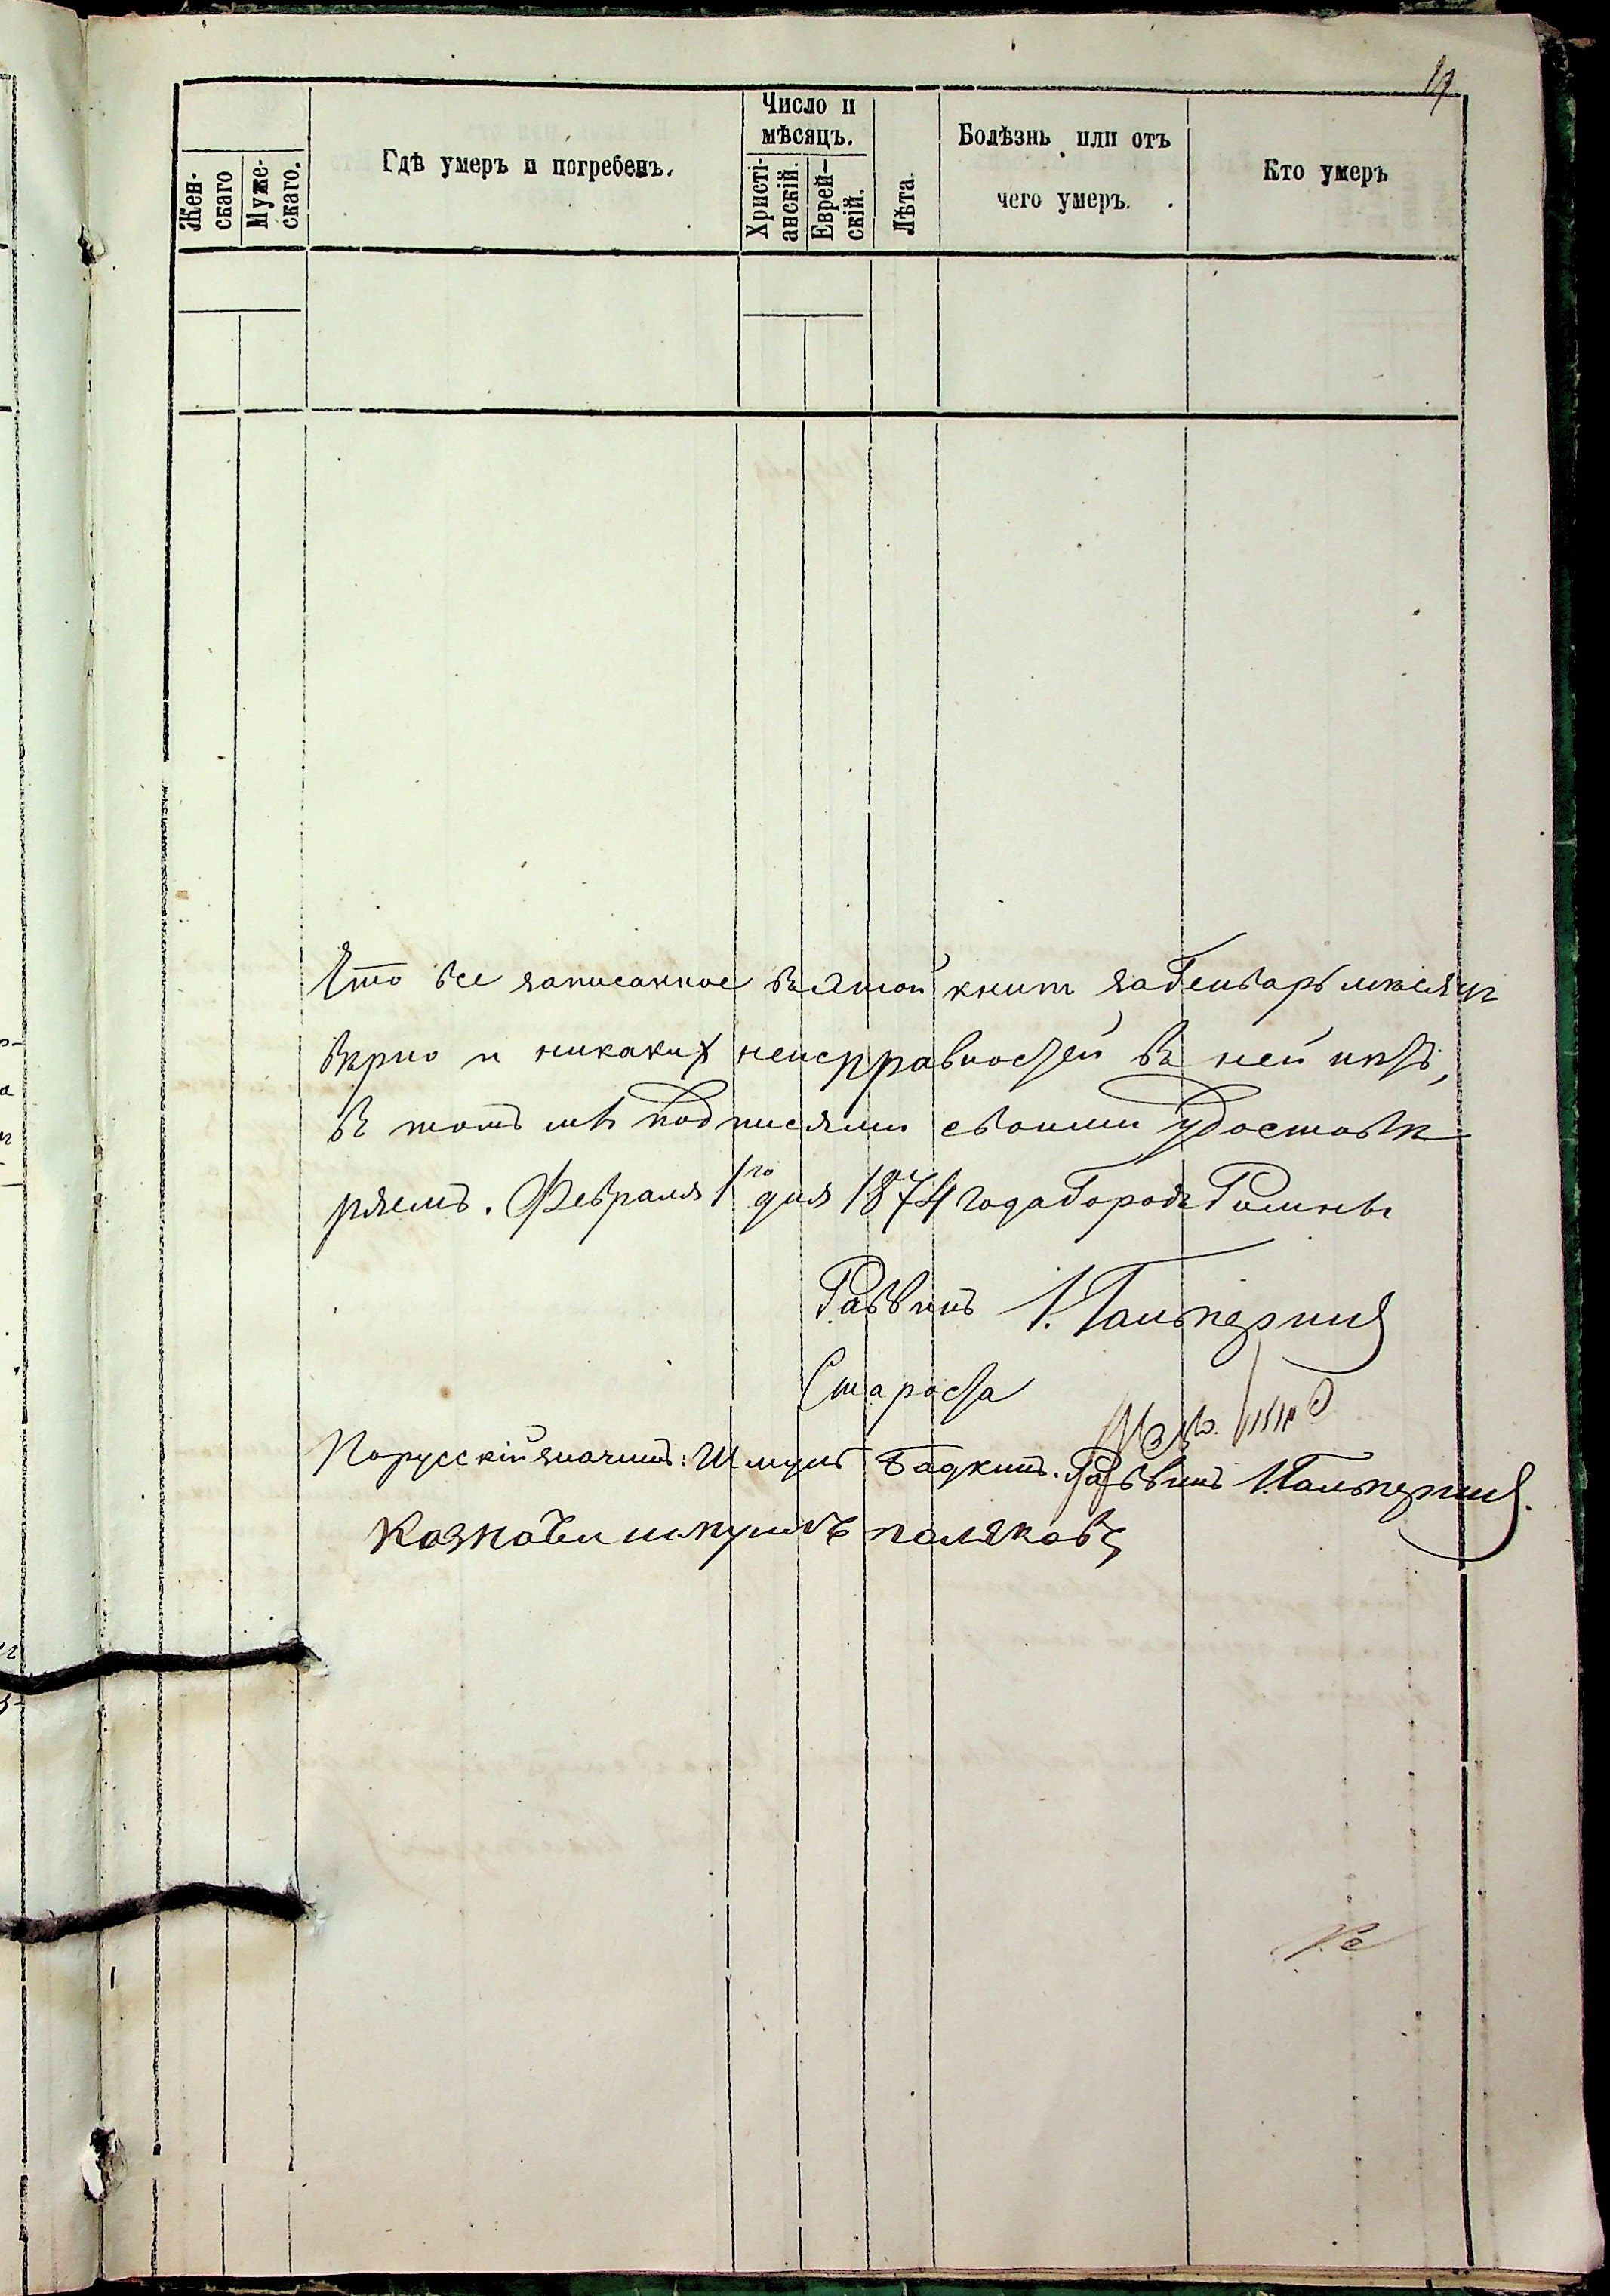 Жен-
скаго
Муже-
скаго.
Гдѣ умеръ и погребенъ.
Число и
мѣсяцъ.
Христі-
анскій.
Еврей-
скій.
Лѣта
Болѣзнь или отъ
чего умеръ.
Кто умеръ
Что все записанное въ этой книгѣ за Генварь мѣсяцъ
вѣрно и никакихъ неисправностей въ ней нѣтъ,
въ томъ мы подписями своими удостовѣ
ряемъ. Февраля 1го дня 1874 года Городъ Ромны
Раввинъ І. Гальперинъ
Староста
По русскій значитъ: Шмуль Бадкинъ. Раввинъ І. Гальперинъ.
Казначей поляковъ